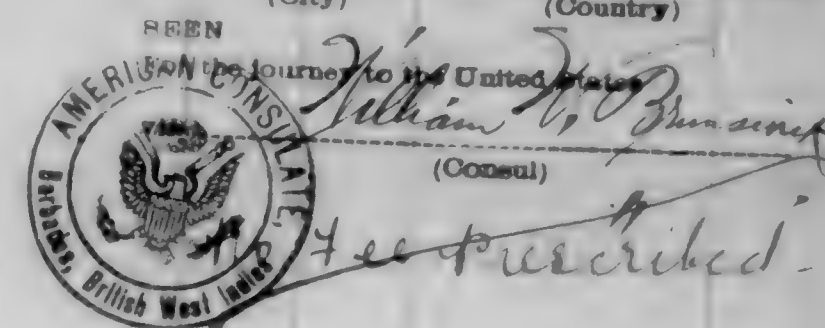 (City) (Country)
SEEN
For the journey to the United States
William W. Brunswick
(Consul)
No Fee Prescribed.
AMERICAN CONSULATE,
Barbados, British West Indies